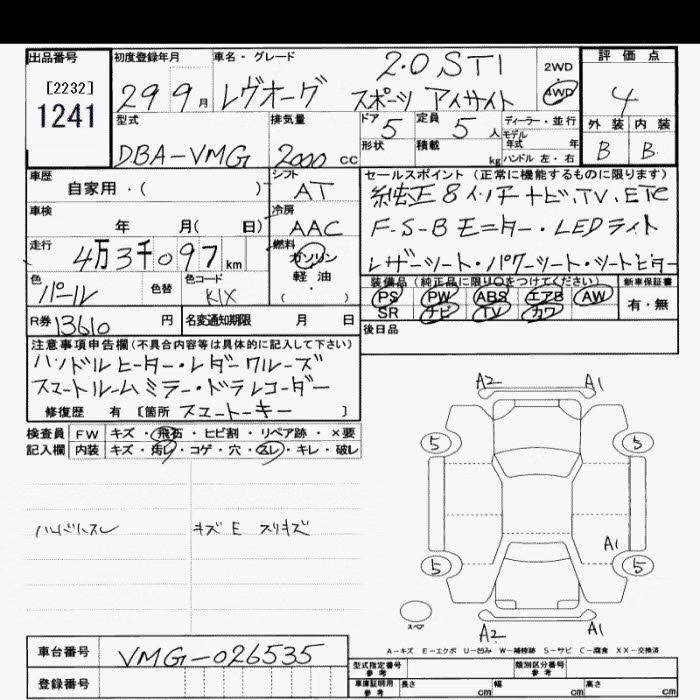 出品番号 初度登録年月 車名・グレード 評価点
[2232] 2.0 STI 2WD
1241 29 9月 レヴォーグ スポーツ アイサイト 4WD 4
型式 排気量 ドア 5 定員 5 人 ディーラー・並行 外装 内装
モデル年式 年
DBA-VMG 2000 cc 形状 積載 kg ハンドル 左・右 B B
車歴 シフト セールスポイント(正常に機能するものに限ります)
自家用・( ) AT 純正8インチナビ、TV、ETC
車検 冷房 F-S-Bモニター・LEDライト
年 月( 日) AAC
走行 燃料 レザーシート・パワーシート・シートヒター
4万3千097km ガソリン
軽油・( )
色 色替 色コード 装備品(純正品に限り○をつけてください) 新車保証書
パール K1X PS PW ABS エアB AW 有・無
SR ナビ TV カワ
R券 13610 円 名変通知期限 月 日 後日品
注意事項申告欄(不具合内容等は具体的に記入して下さい)
ハンドルヒーター・レダークルーズ
スマートルームミラー・ドラレコーダー
修復歴 有 [箇所 スマートーキー ]
検査員 FW キズ・飛石・ヒビ割・リペア跡・×要
記入欄 内装 キズ・汚レ・コゲ・穴・スレ・キレ・破レ
A2 A1
5 5
キズE スリキズ
A1
5 5
スペア
A2 A1
A-キズ E-エクボ U-凹み W-補修跡 S-サビ C-腐食 XX-交換済
車台番号 VMG-026535
型式指定番号 参考 類別区分番号 参考
登録番号 車庫証明用 参考 長さ cm 幅 cm 高さ cm